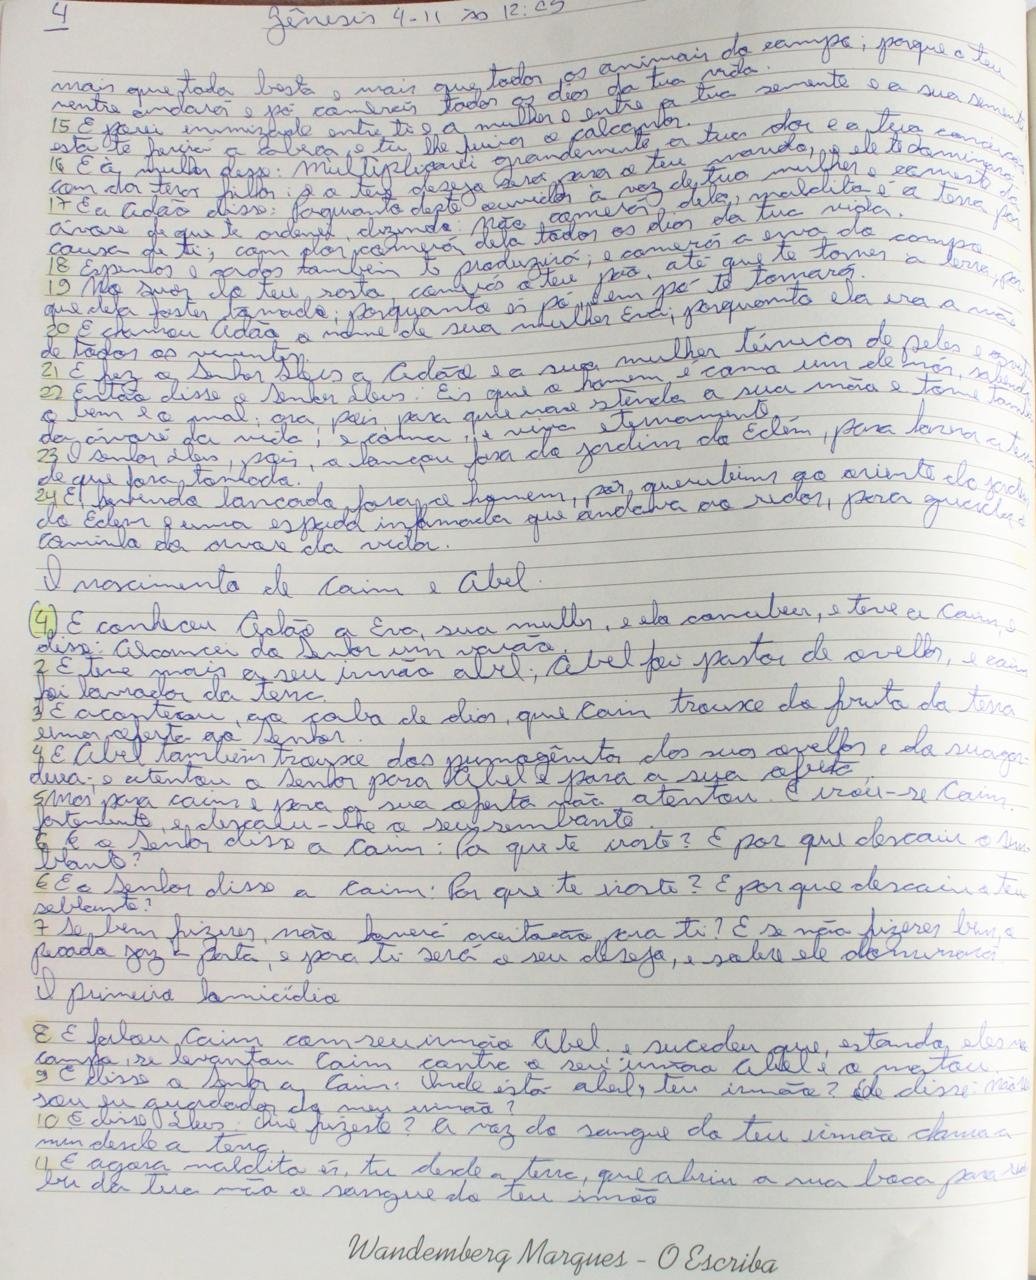 4 Gênesis 4-11 às 12:05
mais que toda besta e mais que todos os animais do campo; porque o teu
ventre andarás e pó comerás todos os dias da tua vida.
15 E porei inimizade entre ti e a mulher e entre a tua semente e a sua semente
esta te ferirá a cabeça e tu lhe ferirás o calcanhar.
16 E à mulher disse: Multiplicarei grandemente a tua dor e a tua conceição
com dor terás filhos; e o teu desejo será para o teu marido, e ele te dominará
17 E a Adão disse: Porquanto deste ouvidos à voz de tua mulher e comeste da
árvore de que te ordenei, dizendo: Não comerás dela, maldita é a terra por
causa de ti; com dor comerás dela todos os dias da tua vida.
18 Espinhos e cardos também te produzirá; e comerás a erva do campo
19 No suor do teu rosto comerás o teu pão, até que te tornes à terra; por
que dela foste tomado; porquanto és pó, em pó te tornará.
20 E chamou Adão o nome de sua mulher Eva; porquanto ela era a mãe
de todos os viventes.
21 E fez o Senhor Deus a Adão e a sua mulher túnicas de peles e
22 Então disse o Senhor Deus: Eis que o homem é como um de nós, sabendo
o bem e o mal; ora, pois, para que não estenda a sua mão e tome também
da árvore da vida; e coma, e viva eternamente
23 O senhor Deus, pois, o lançou fora do jardim do Edém, para lavrar a terra
de que fora tomada.
24 E, havendo lançado fora o homem, pôs querubins ao oriente do jardim
do Edem e uma espada inflamada que andava ao redor, para guardar o
caminho da árvore da vida.
O nascimento de Caim e Abel.
4 E conheceu Adão a Eva, sua mulher, e ela concebeu, e teve a Caim, e
disse: Alcancei do Senhor um varão.
2 E teve mais a seu irmão abel; Abel foi pastor de ovelhas, e caim
foi lavrador da terra.
3 E aconteceu, ao cabo de dias, que Caim trouxe do fruto da terra
uma oferta ao Senhor.
4 E Abel também trouxe dos primogênitos das suas ovelhas e da sua gor-
dura; e atentou o Senhor para Abel e para a sua oferta.
5 Mas para caim e para a sua oferta não atentou. E irou-se Caim
fortemente, e descaiu-lhe o seu semblante.
6 E o Senhor disse a Caim: Por que te iraste? E por que descaiu o sem
blante?
6 E o Senhor disse a Caim: Por que te iraste? E por que descaiu o teu
seblante?
7 Se bem fizeres, não haverá aceitação para ti? E se não fizeres bem, o
pecado jaz à porta, e para ti será o seu desejo, e sobre ele dominará
O primeiro homicídio
8 E falou Caim com seu irmão Abel e sucedeu que, estando eles no
campo, se levantou Caim contra o seu irmão Abel e o matou.
9 E disse o Senhor a Caim: Onde está abel, teu irmão? ele disse: Não sei
sou eu guardador do meu irmão?
10 E disse Deus: Que fizeste? A voz do sangue do teu irmão clama a
mim desde a terra.
11 E agora maldita és, tu desde a terra, que abriu a sua boca para rece
ber da tua mão o sangue do teu irmão
Wandemberg Marques - O Escriba